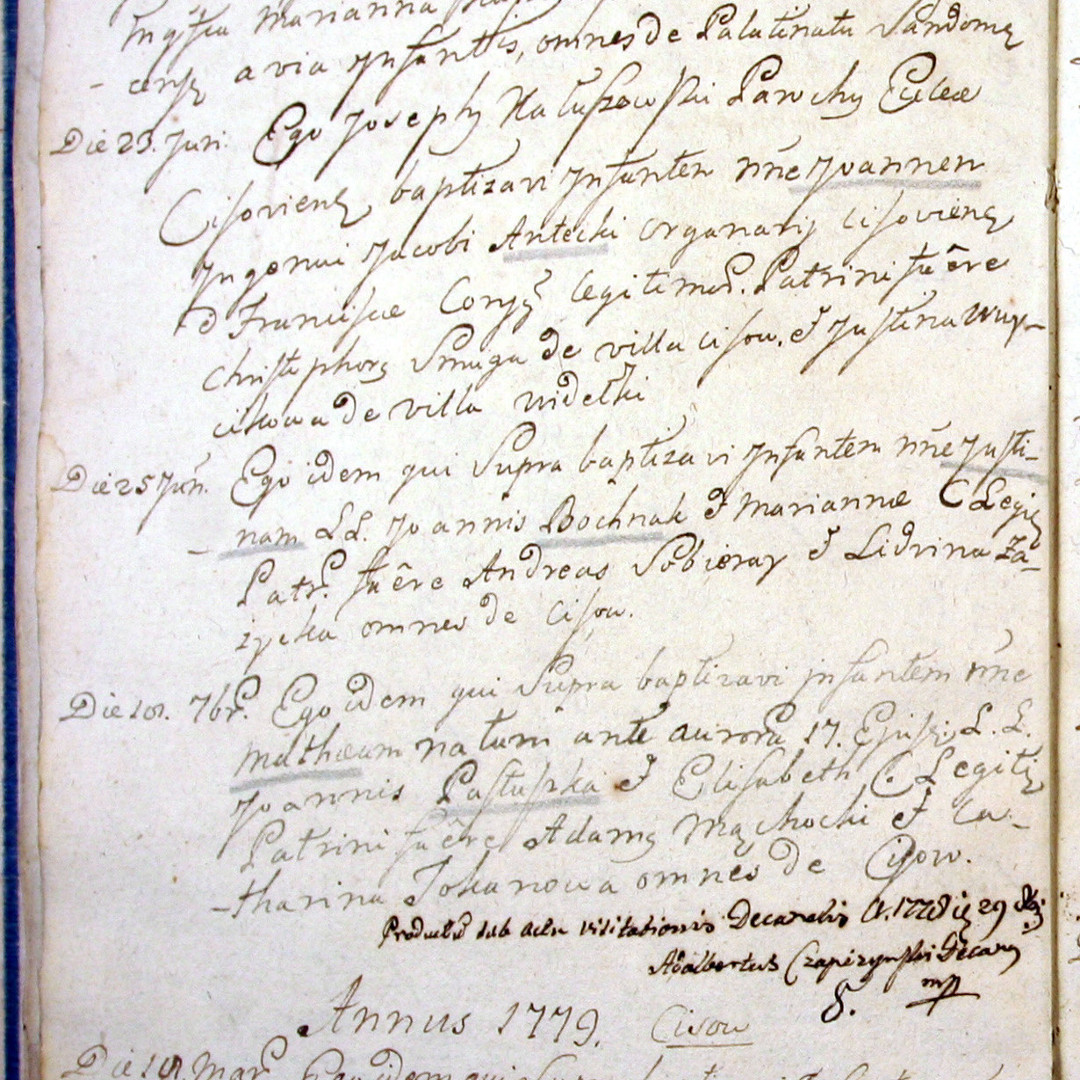 Marianna
censẹ avia Infantis, omnes de Palatinatu Sandomę
Die 23. Juni. Ego Josephȝ Natuszewski Parochȝ Eccłæ
Cisovienę baptizavi Infantem nn̄e Joannen
Ingenui Jacobi Antecki organarij Cisovienę
& Franciscæ Conjȝ legitimoȝ. Patrini fuêre
Christophorȝ Smuga de villa Cisow. & Justina Wuy-
cikowa de villa Widełki
Die 25 Jun̄. Ego idem qui Supra baptizavi Infantem nn̄e Justi-
- nam LL. Joannis Bochnak & Mariannæ C Legię
Patr. fuêre Andreas Sobieray & Lidvina Za-
życka omnes de Cisow.
Die 18. 7br. Ego idem qui Supra baptizavi Infantem nn̄e
Mathæum natum ante aurorā 17. Ejusȝ. L. L.
Joannis Pastuszka & Elisabeth C. Legitię
Patrini fuêre Adamȝ Mąchocki & Ca-
-tharina Tokarzowa omnes de Cisow.
Productū sub actu visitationis Decanalis A. 1778 die 29
Adalbertus Czapczynski Decanȝ
mp
8.
Annus 1779. Cisow
Die 18. Mar. Ego idem qui Supra